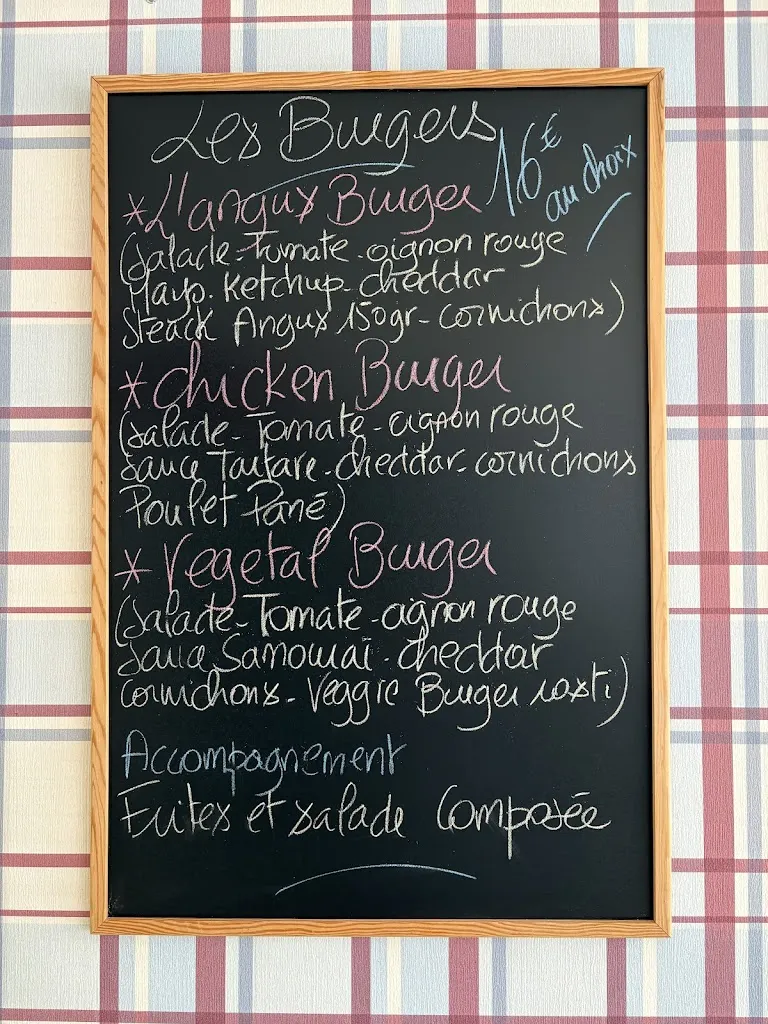 Les Burgers
16€
au choix
*L'angus Burger
(salade-Tomate-oignon rouge
Mayo-Ketchup-cheddar
Steack Angus 150gr-cornichons)
*chicken Burger
(salade-Tomate-oignon rouge
sauce Tartare-cheddar-cornichons
Poulet Pané)
*Vegetal Burger
(salade-Tomate-oignon rouge
sauce Samouraï-cheddar
cornichons-Veggie Burger rosti)
Accompagnement
Frites et salade Composée